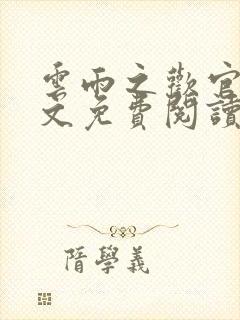 雲雨之歡官
文免費閱讀
隋學義